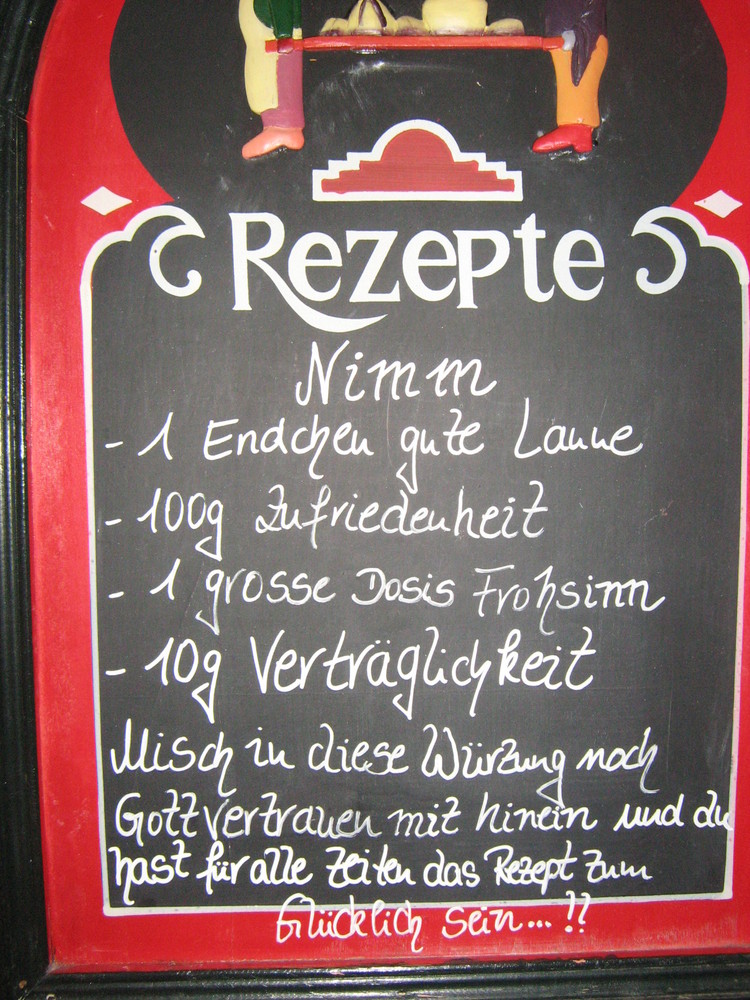 Rezepte
Nimm
- 1 Endchen gute Laune
- 100g Zufriedenheit
- 1 grosse Dosis Frohsinn
- 10g Verträglichkeit
Misch in diese Würzung noch
Gottvertrauen mit hinein und du
hast für alle Zeiten das Rezept zum
Glücklich sein...!!